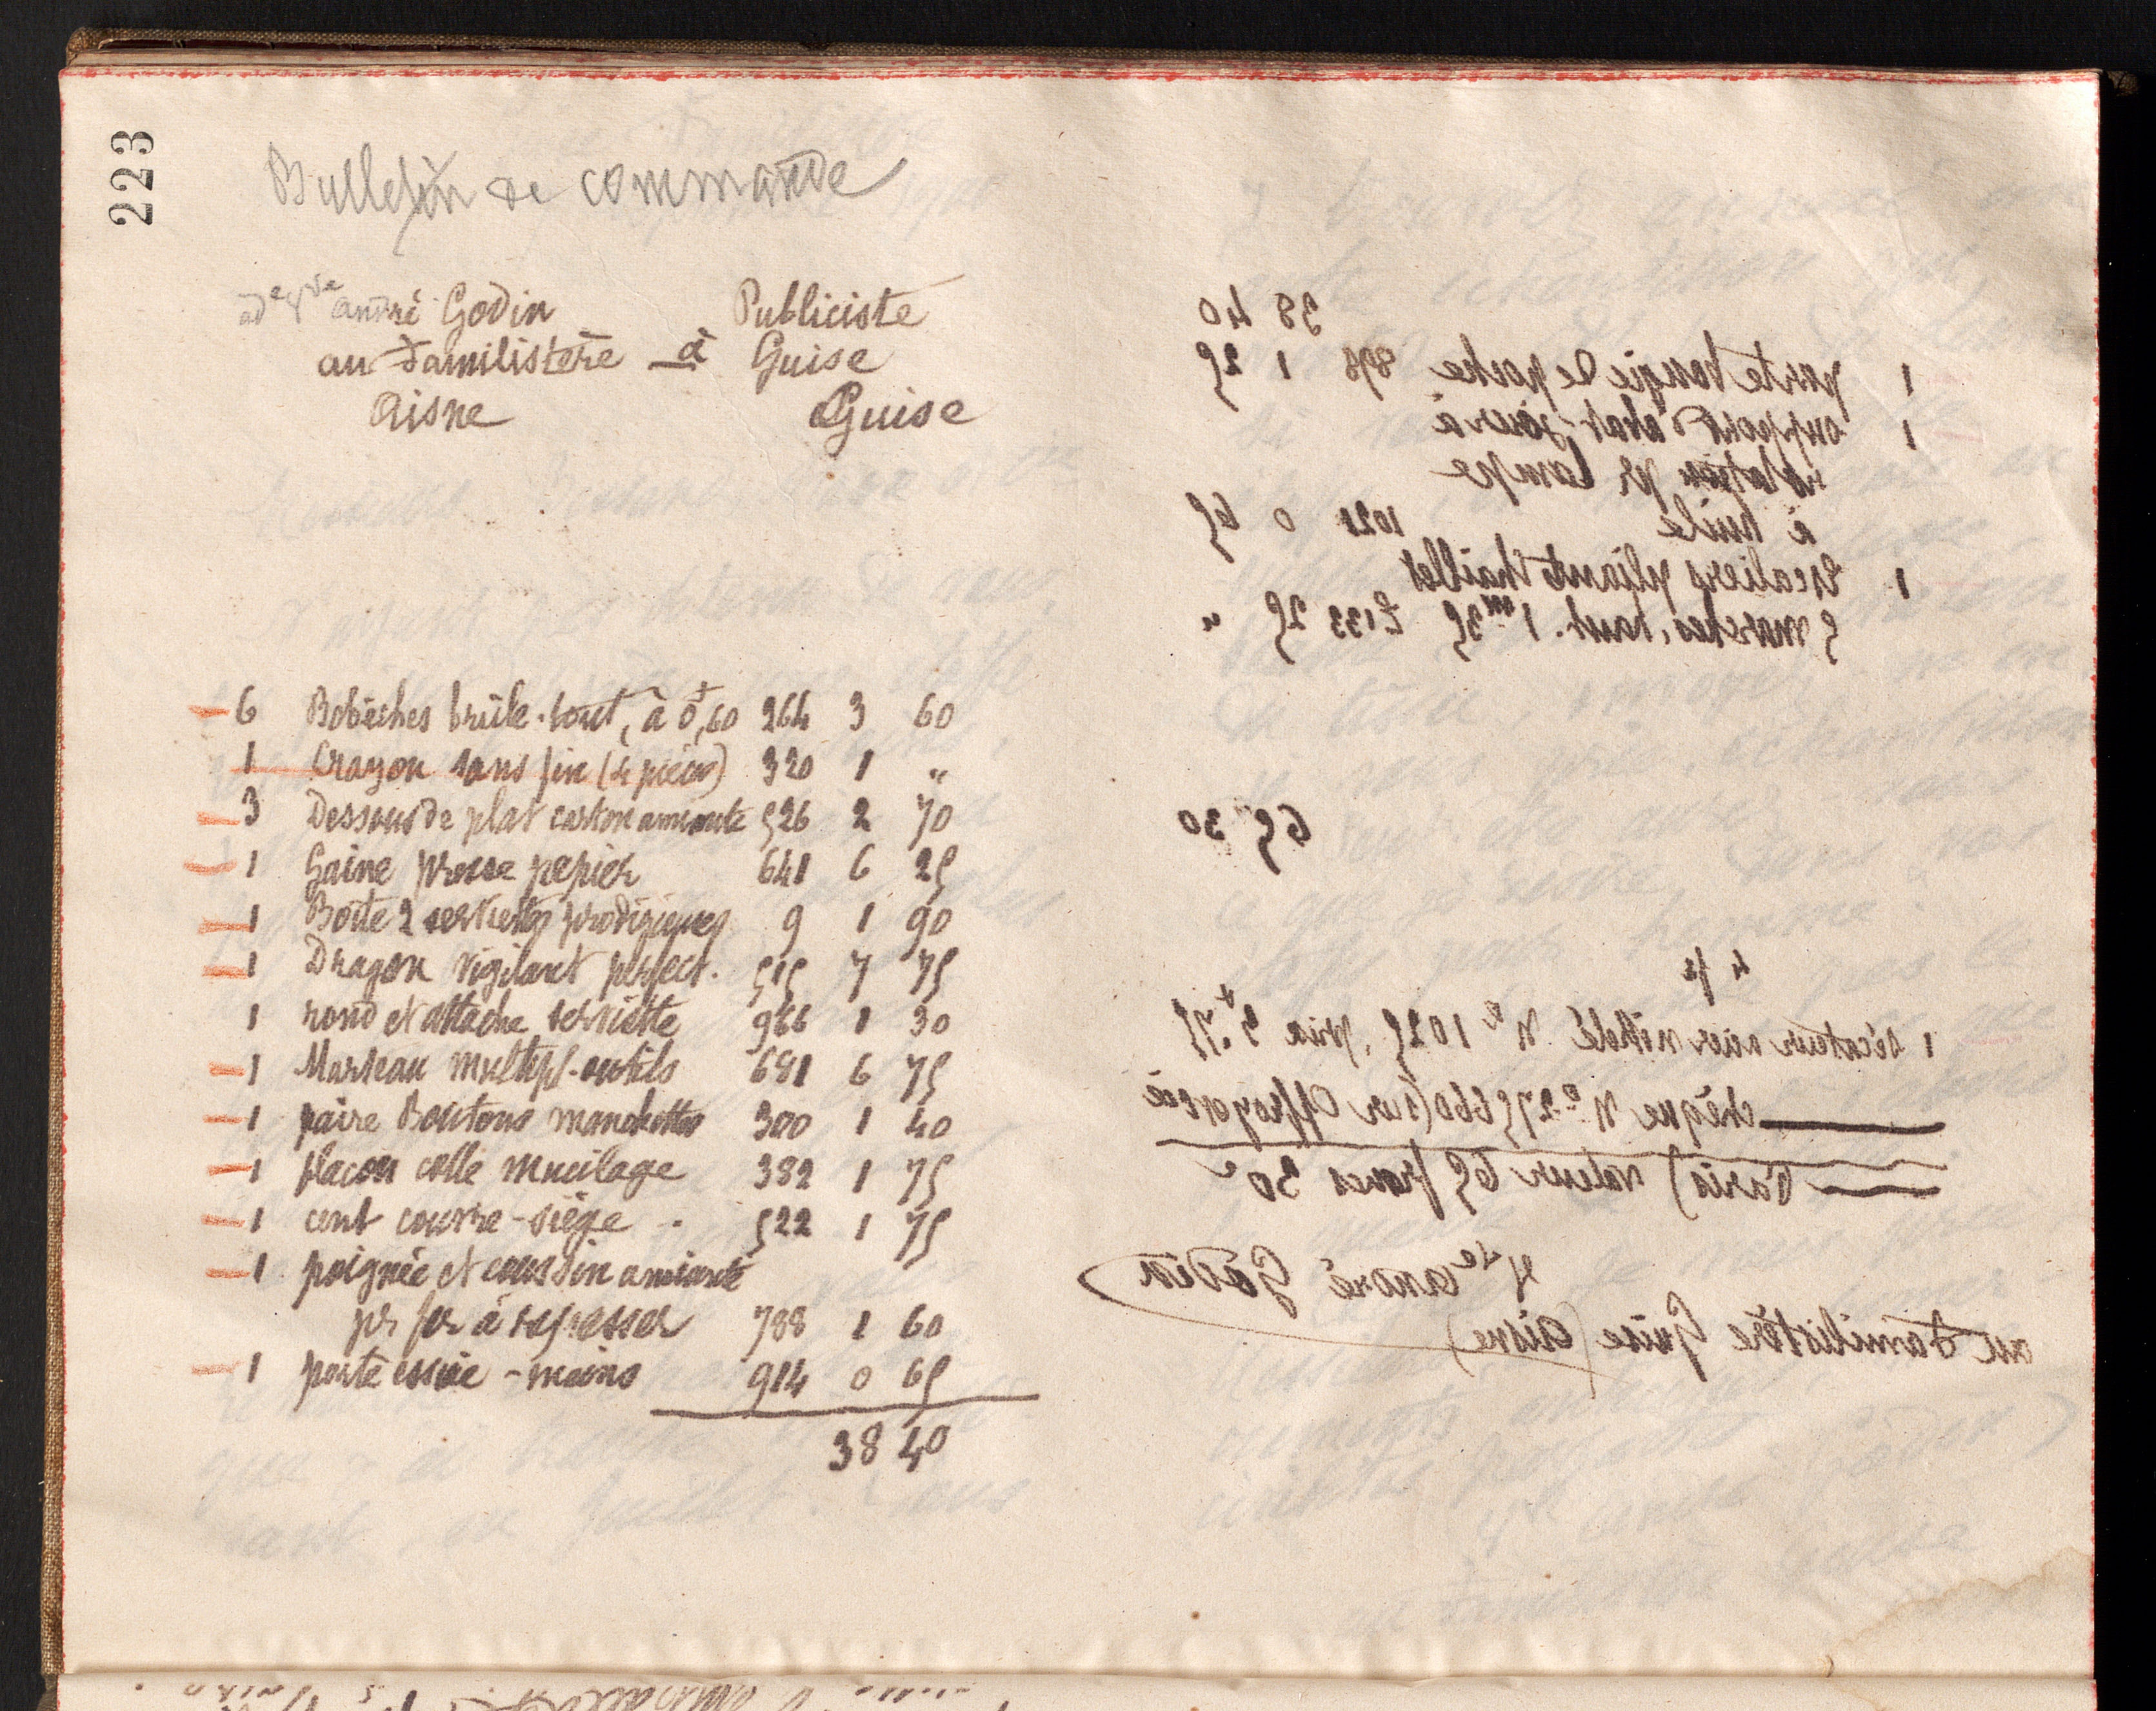 223
Bulletin de commande
ad de Vve André Godin Publiciste
au Familistère à Guise
Aisne Guise
6 Bobèches brûle-tout, à 0f,60 264 3 60
1 Crayon sans fin (4 pièces) 320 1 "
3 Dessous de plat carton amiante 526 2 70
1 Gaine presse papier 641 6 25
1 Boîte 2 serviettes prodigieuses 9 1 90
1 Dragon vigilant perfect. 515 7 75
1 rond et attache serviette 966 1 30
1 Marteau multipl-outils 681 6 75
1 paire Boutons manchettes 300 1 40
1 flacon colle mucilage 382 1 75
1 cent couvre-siège . 522 1 75
1 poignée et coussin amiante
pr fer à repasser 788 1 60
1 porte essuie-mains 914 0 65
38 40
38 40
1 porte bougie de poche 898 1 25
1 support abat-jour à
pr lampe
à huile 1021 0 65
1 Escaliers pliants Maillet
5 marches, haut. 1m35 £133 25 "
65 30
4 fr
1 sécateur acier nickelé No 1025, prix 3f,75
chèque No 275660 (sur
Paris) valeur 65 francs 30c
Vve André Godin
au Familistère Guise (Aisne)